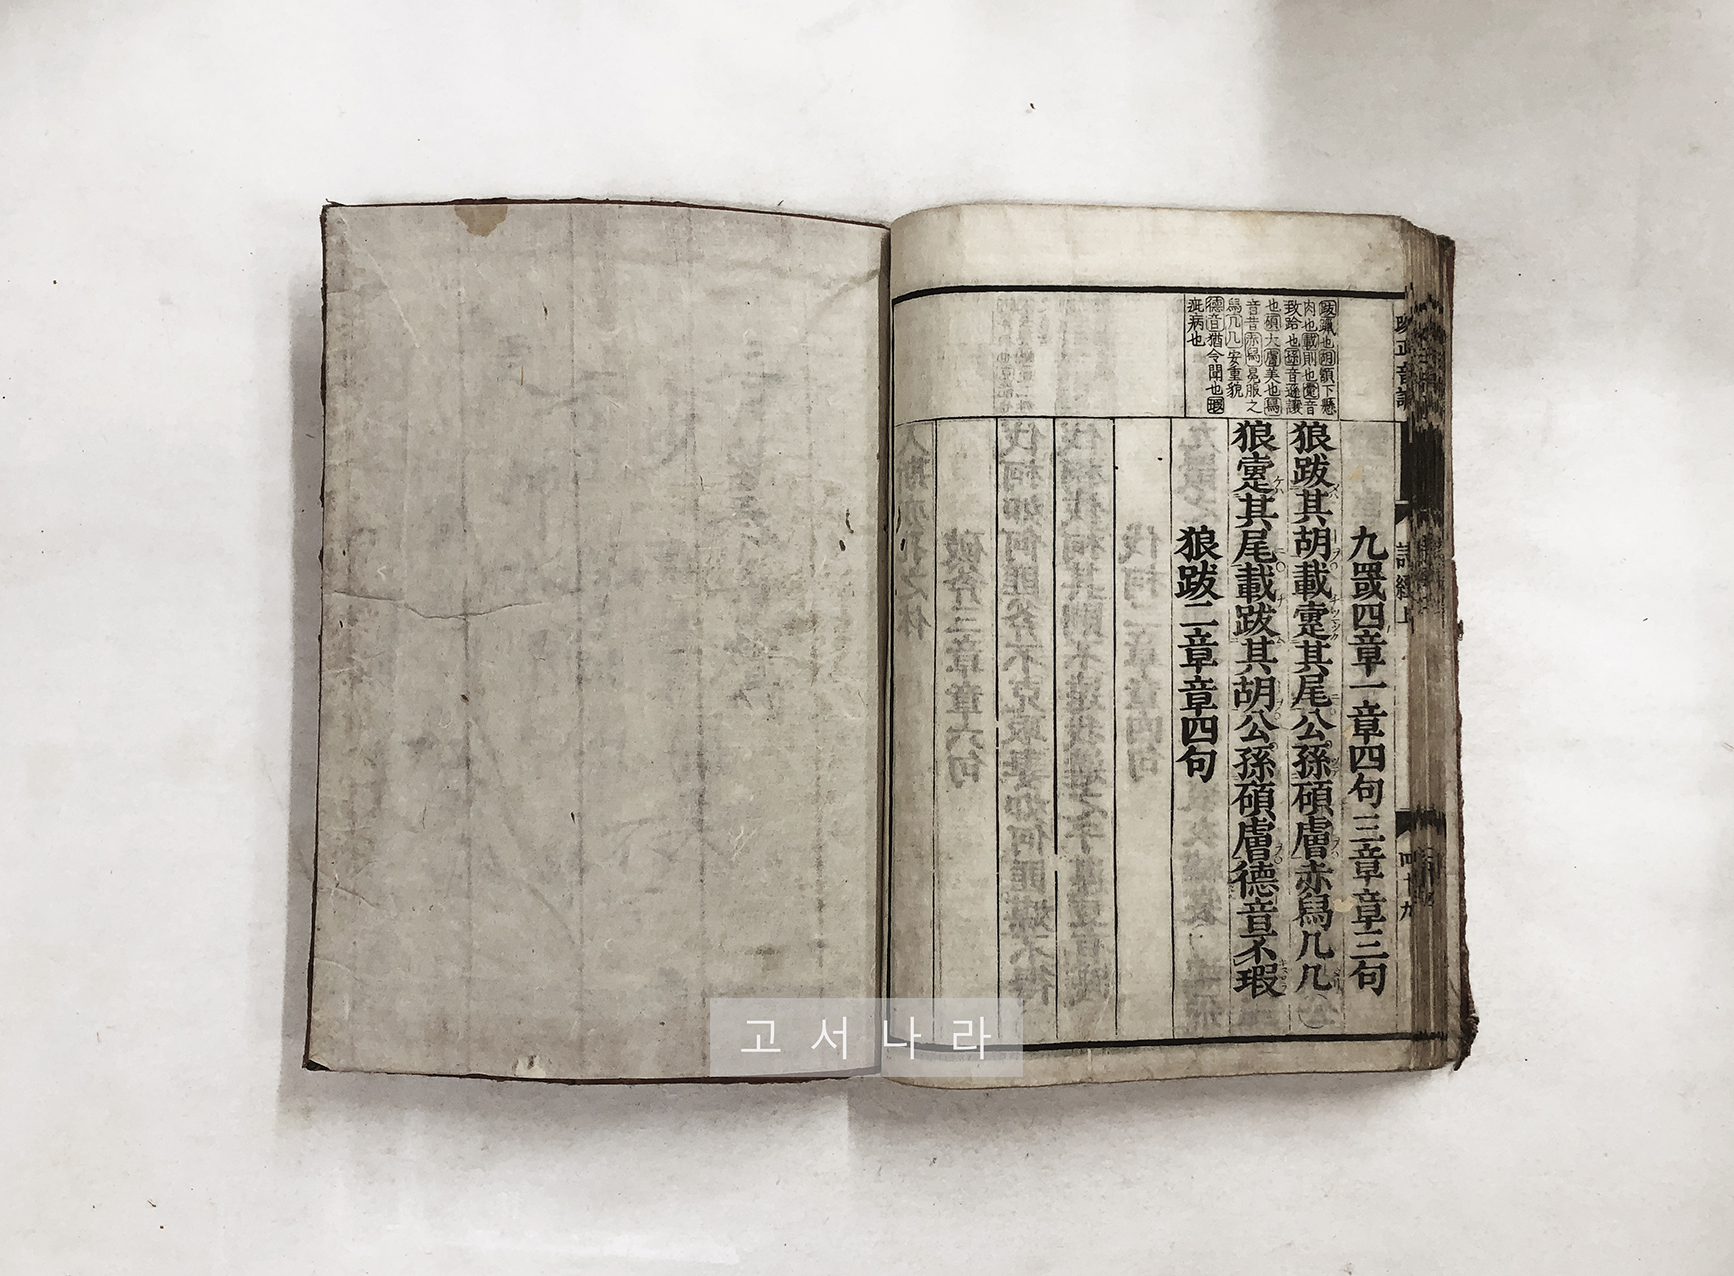 九罭四章一章四句三章章三句
狼跋其胡載疐其尾公孫碩膚赤舄几几
狼疐其尾載跋其胡公孫碩膚德音不瑕
狼跋二章章四句
跋躐也胡頷下懸
肉也載則也疐音
致跲也孫音遜讓
也碩大膚美也舄
音昔赤舄冕服之
舄几几安重貌
德音猶令聞也瑕
疵病也
改正音訓
詩經上
고서나라